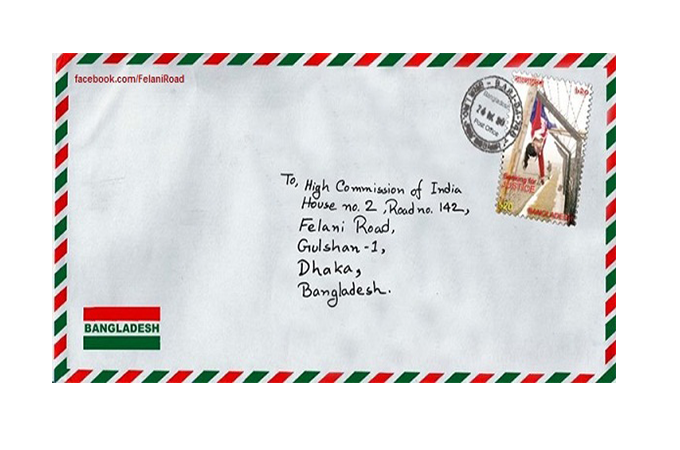 facebook.com/FelaniRoad
বাংলাদেশ
৳20
Bangladesh
Post Office
Seeking for
JUSTICE
৳20
BANGLADESH
To, High Commission of India
House no. 2, Road no. 142,
Felani Road,
Gulshan-1,
Dhaka,
Bangladesh.
BANGLADESH